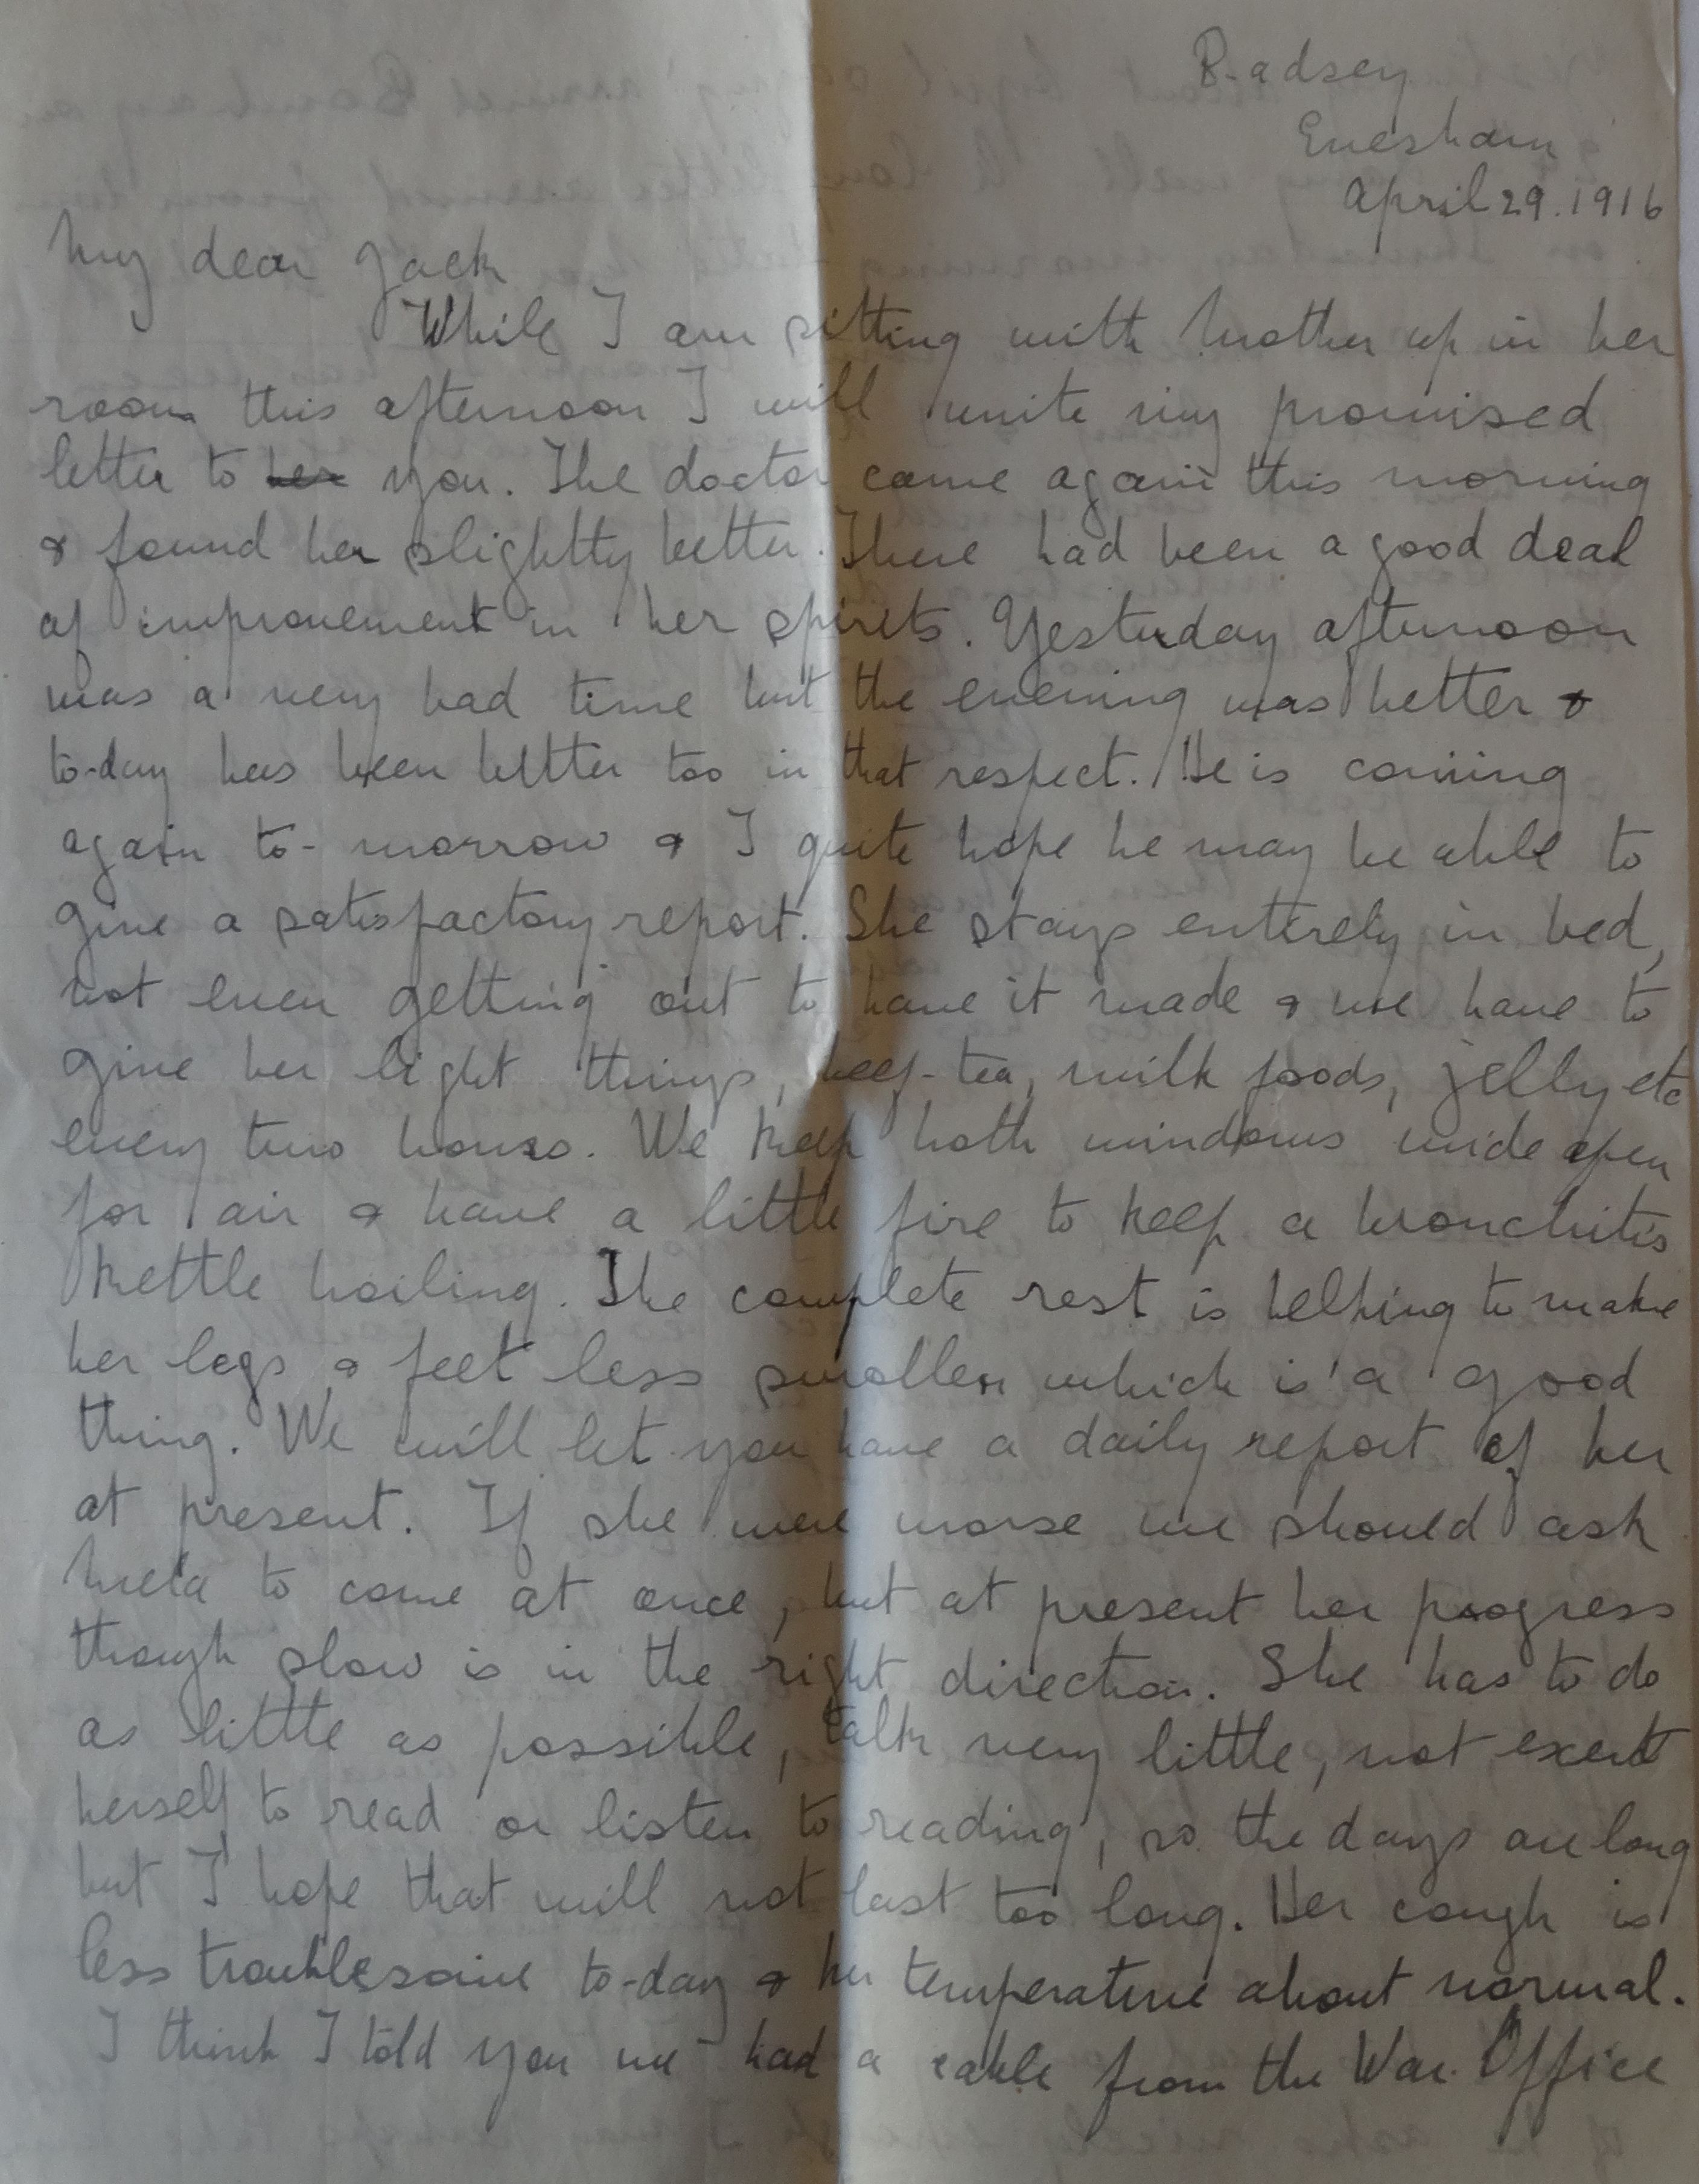 Badsey
Evesham
April 29. 1916
My dear Jack
While I am sitting with Mother up in her
room this afternoon I will write my promised
letter to her you. The doctor came again this morning
& found her slightly better. There had been a good deal
of improvement in her spirits. Yesterday afternoon
was a very bad time but the evening was better &
to-day has been better too in that respect. He is coming
again to-morrow & I quite hope he may be able to
give a satisfactory report. She stays entirely in bed,
not even getting out to have it made & we have to
give her light things, beef-tea, milk foods, jelly etc
every two hours. We keep both windows wide open
for air & have a little fire to keep a bronchitis
kettle boiling. The complete rest is helping to make
her legs & feet less swollen which is a good
thing. We will let you have a daily report of her
at present. If she were worse we should ask
Mela to come at once, but at present her progress
though slow is in the right direction. She has to do
as little as possible, talk very little, not exert
herself to read or listen to reading, so the days are long
but I hope that will not last too long. Her cough is
less troublesome to-day & her temperature about normal.
I think I told you we had a cable from the War Office